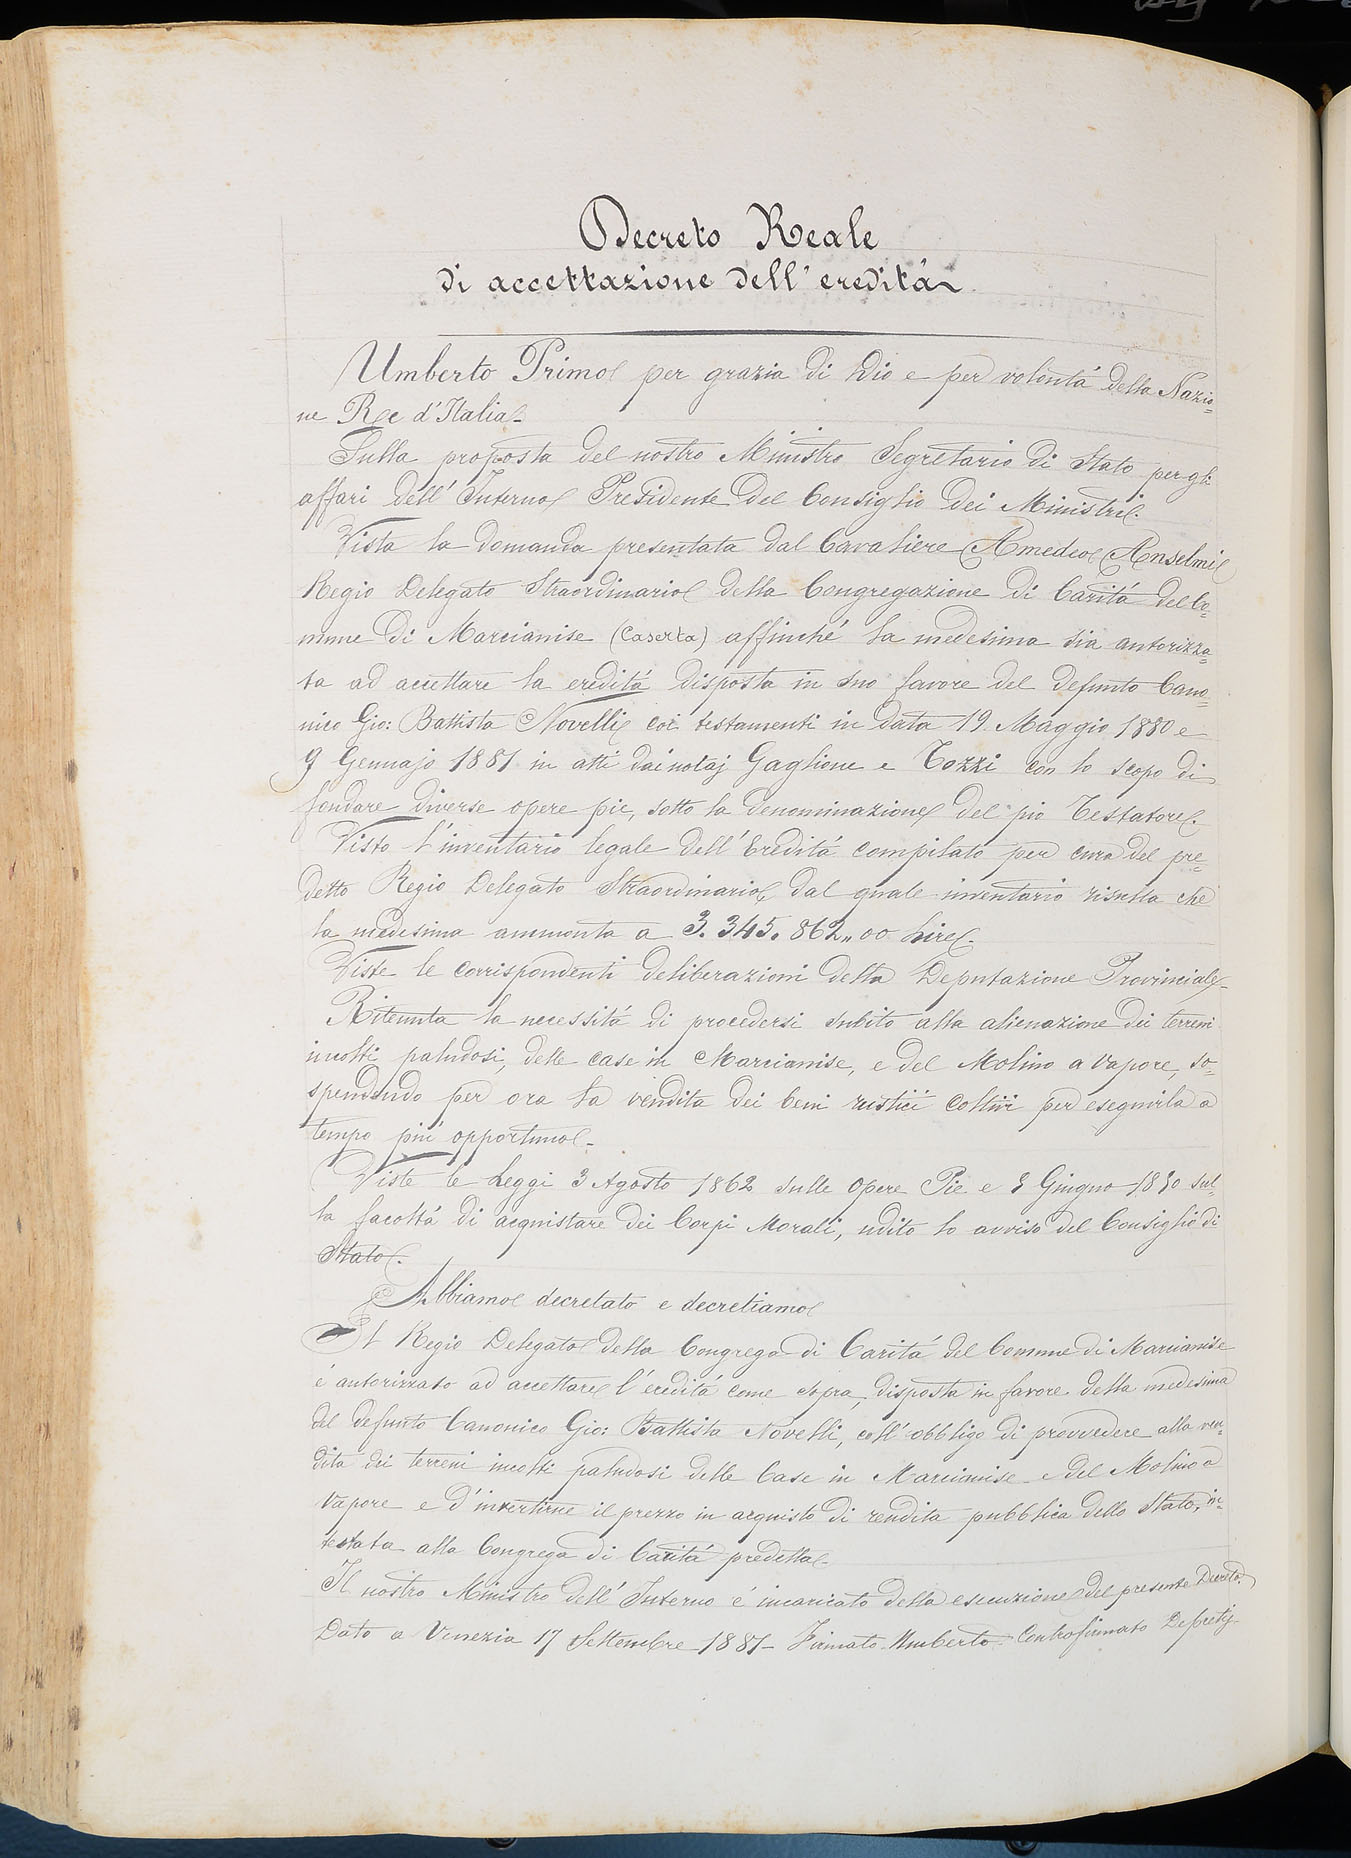 Decreto Reale
di accettazione dell'eredità
Umberto Primo per grazia di Dio e per volontà della Nazio=
ne Re d'Italia-
Sulla proposta del nostro Ministro Segretario di Stato per gli
affari dell'Interno Presidente del Consiglio dei Ministri.
Vista la domanda presentata dal Cavaliere Amedeo Anselmi
Regio Delegato Straordinario della Congregazione di Carità del Co=
mune di Marcianise (Caserta) affinché la medesima sia autorizza=
ta ad accettare la eredità disposta in suo favore del defunto Cano=
nico Gio: Battista Novelli coi testamenti in data 19 Maggio 1880 e
9 Gennajo 1881 in atti dai notaj Gaglione e Tozzi con lo scopo di
fondare diverse opere pie, sotto la denominazione del pio Testatore.
Visto l'inventario legale dell'Eredità compilato per cura del pre=
detto Regio Delegato Straordinario, dal quale inventario risulta che
la medesima ammonta a 3.345.862,,00 Lire.
Viste le corrispondenti deliberazioni della Deputazione Provinciale-
Ritenuta la necessità di procedersi subito alla alienazione dei terreni
incolti paludosi, delle case in Marcianise, e del Molino a vapore, so=
spendendo per ora la vendita dei beni rustici coltivi per eseguirla a
tempo più opportuno-
Viste le Leggi 3 Agosto 1862 sulle Opere Pie e 5 Giugno 1850 sul=
la facoltà di acquistare dei Corpi Morali, udito lo avviso del Consiglio di
Stato.
Abbiamo decretato e decretiamo
Il Regio Delegato della Congrega di Carità del Comune di Marcianise
é autorizzato ad accettare l'eredità come sopra, disposta in favore della medesima
del defunto Canonico Gio: Battista Novelli, coll'obbligo di provvedere alla ven=
dita dei terreni incolti paludosi delle Case in Marcianise e del Molino a
vapore e d'invertirne il prezzo in acquisto di rendita pubblica dello Stato, in=
testata alla Congrega di Carità predetta-
Il nostro Ministro dell'Interno é incaricato della esecuzione del presente Decreto.
Dato a Venezia 17 Settembre 1881- Firmato-Umberto- Controfirmato Depretis